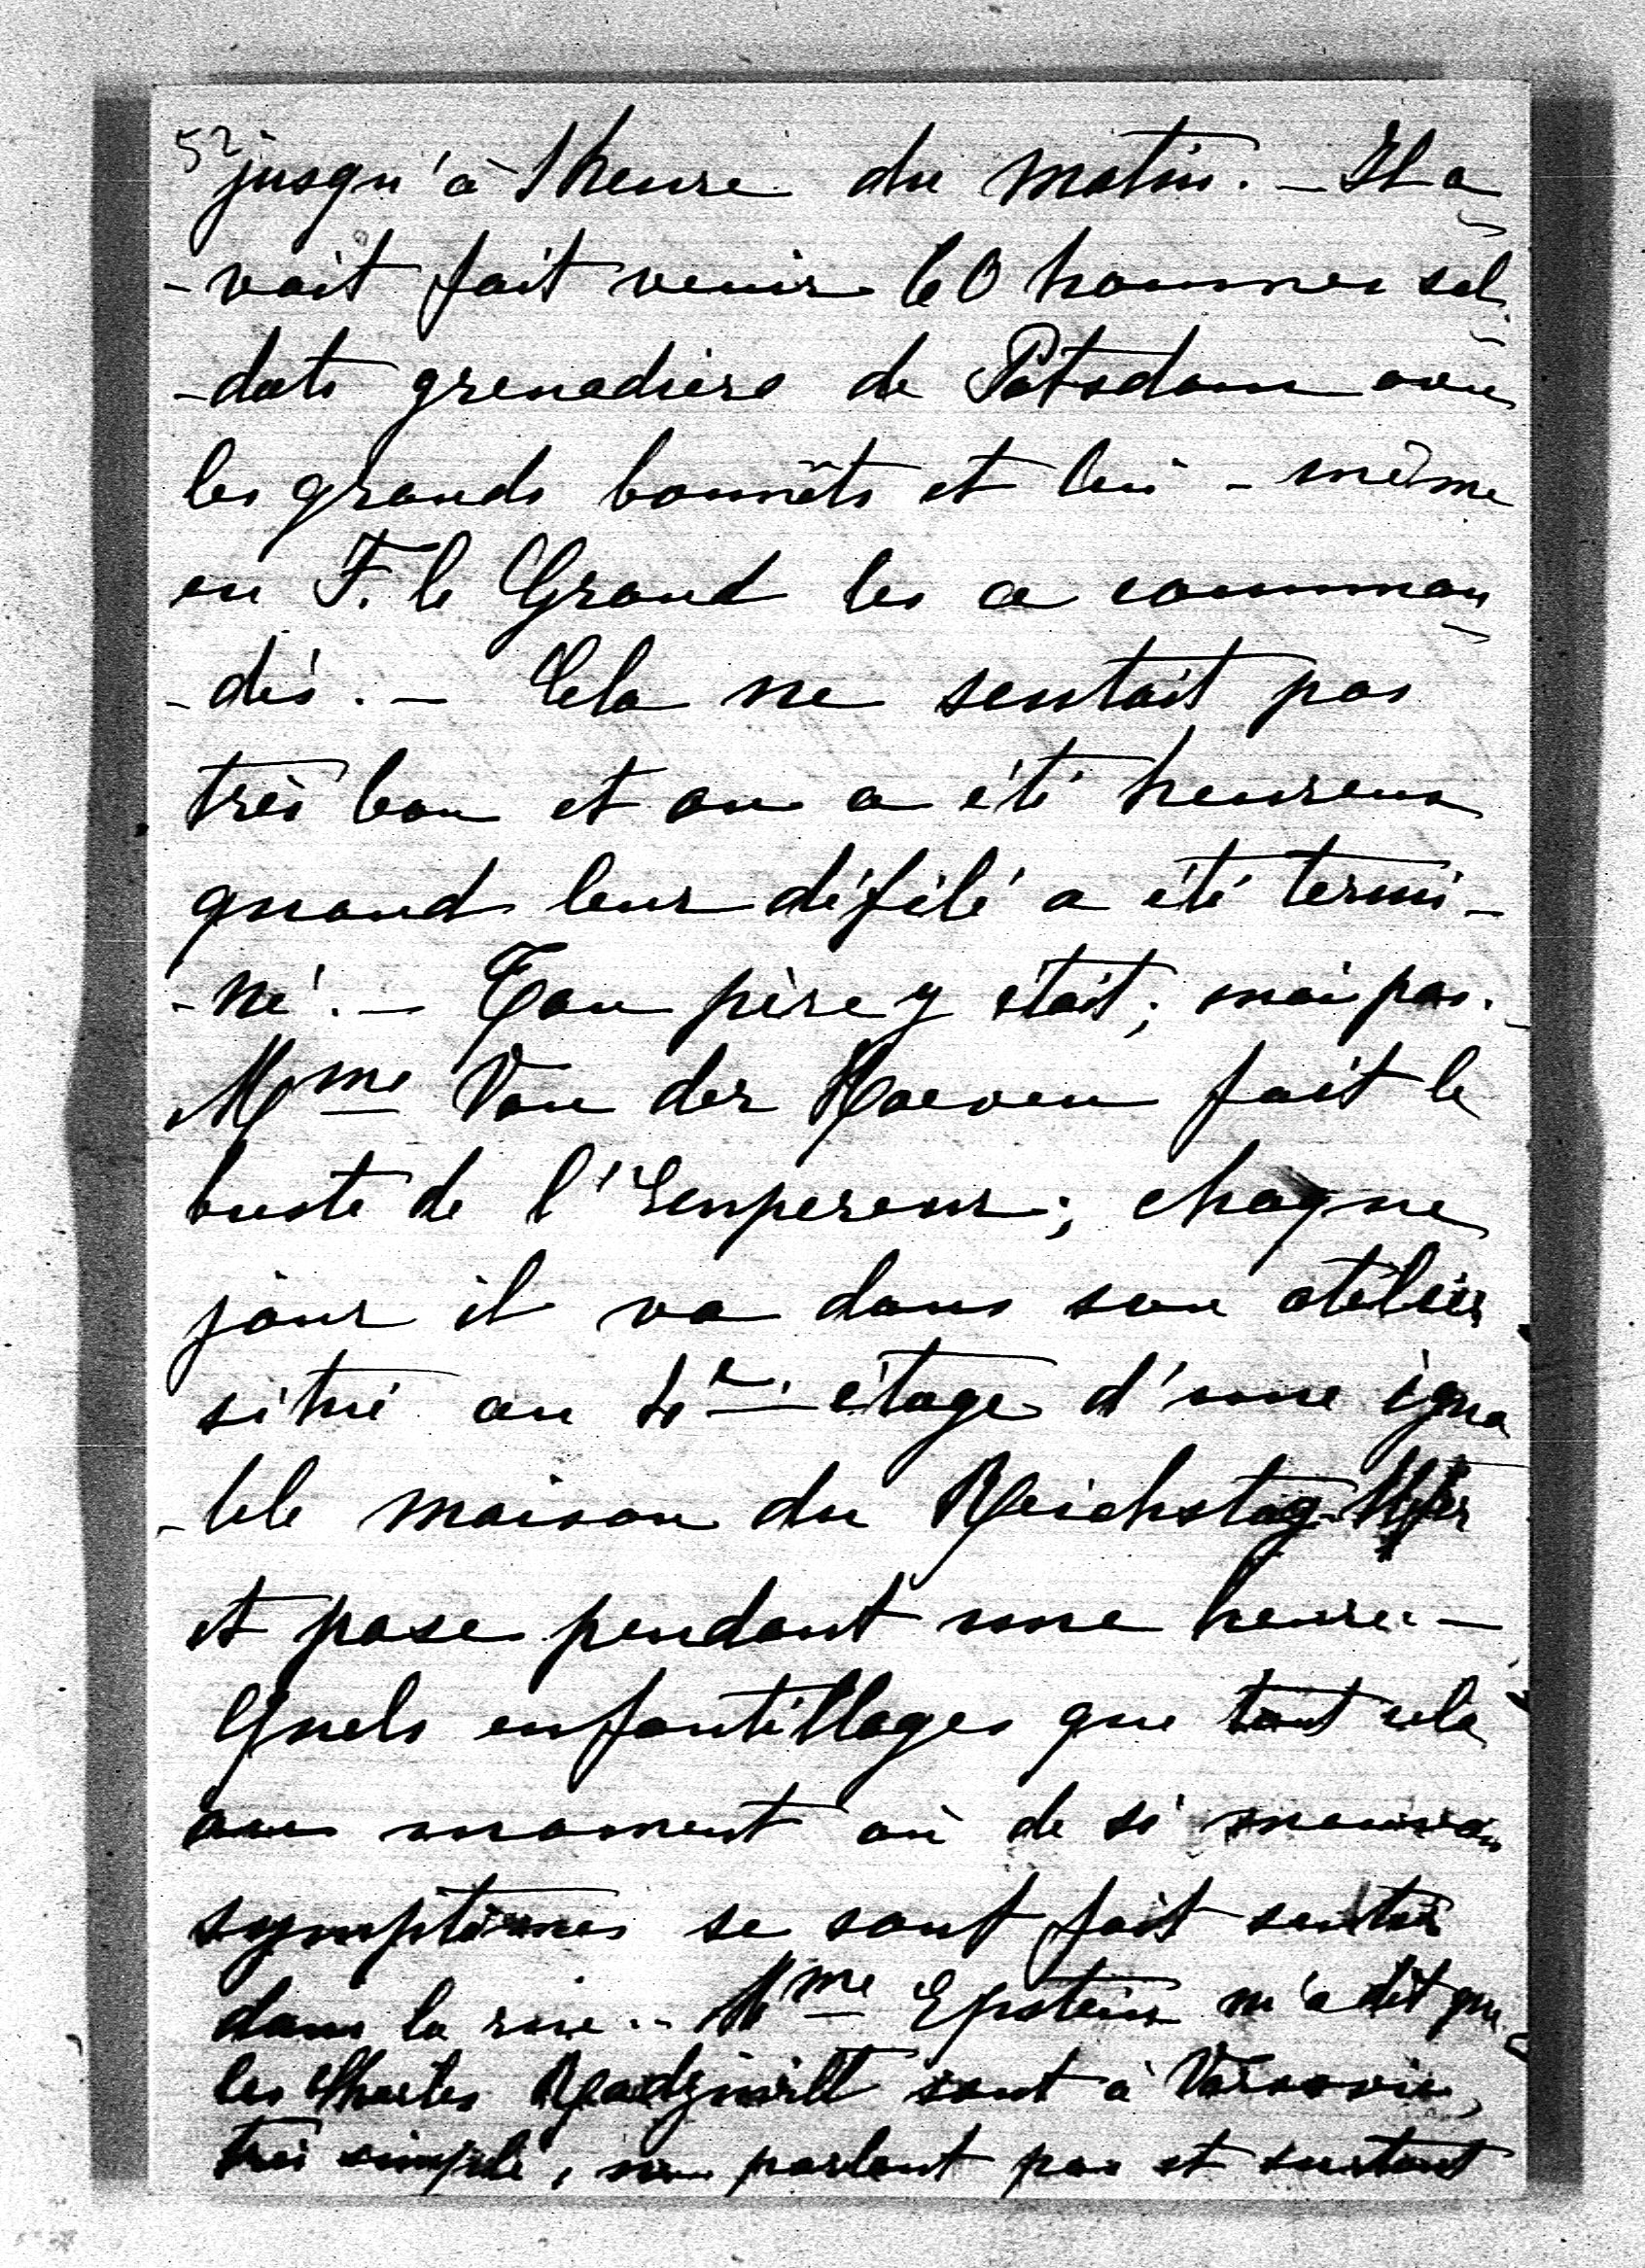 52
jusqu'à 1 heure du matin. – Il a
-vait fait venir 60 hommes sol
-dats grenadiers de Potsdam avec
les grands bonnets et lui-même
en F. le Grand les a comman
-dés. – Cela ne sentait pas
très bon et on a été heureux
quand leur défilé a été termi-
-né. – Ton père y était; moi pas.
Mme Van der Hoeven fait le
buste de l'Empereur; chaque
jour il va dans son atelier
situé au 4e étage d'une igno
-ble maison du Reichstag-Ufer
et pose pendant une heure. –
Quels enfantillages que tout cela
au moment où de si mauvais
symptômes se sont fait sentir
dans la rue. – Mme Epstein m'a dit que
les Radziwill sont à Varsovie,
très parlant pas et surtout